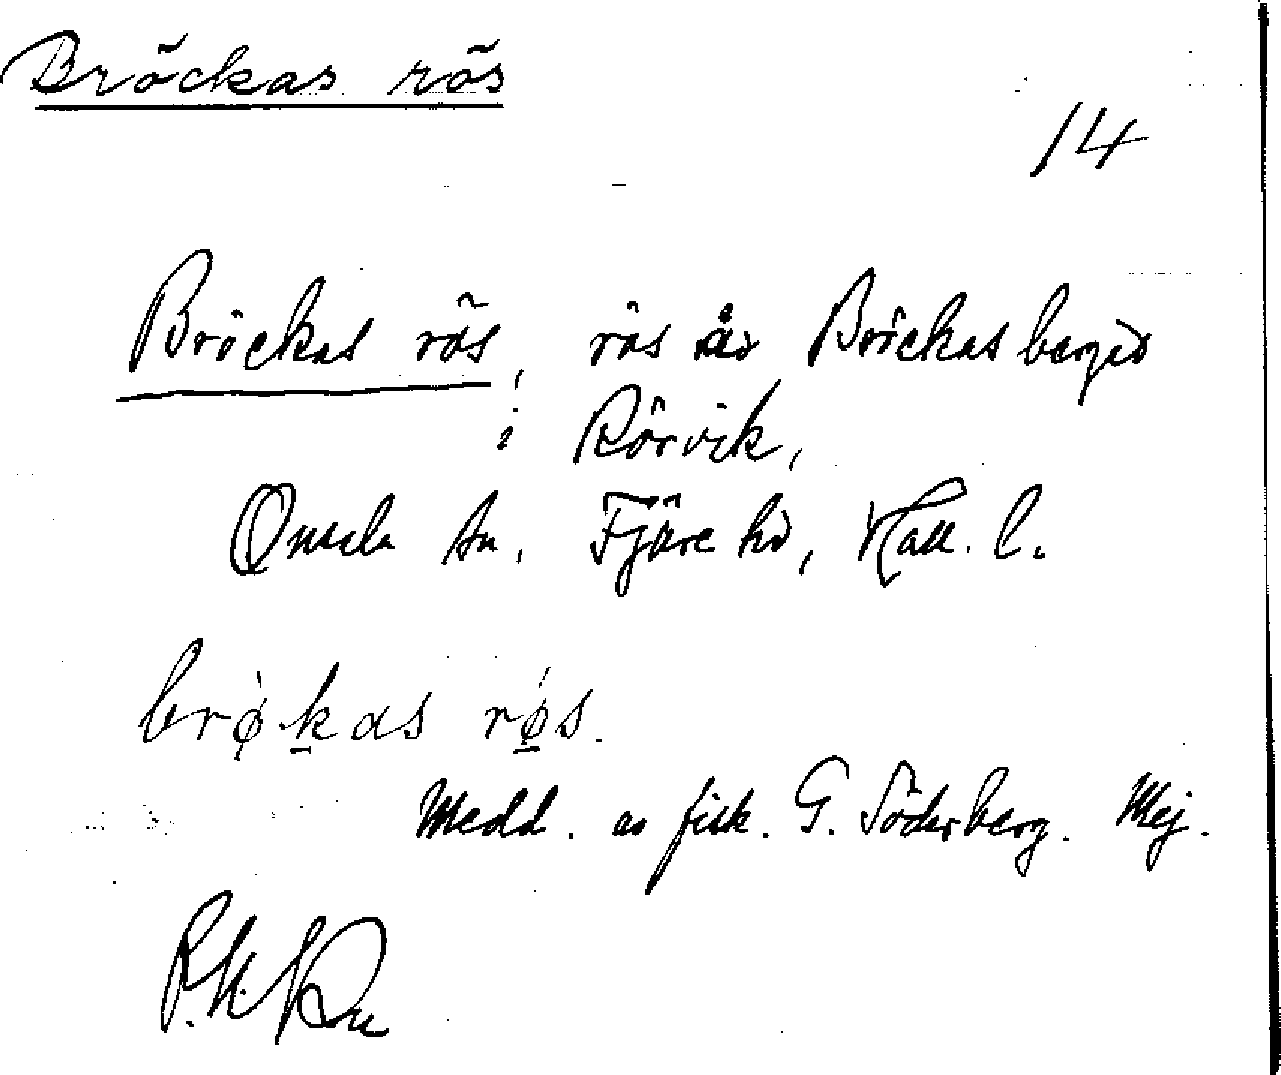 Bröckas rös
14
Bröckas rös, rös å Bröckasberget
i Rörvik,
Onsala sn, Fjäre hd, Hall. l.
brø̀kas rǿ̱s.
Medd. av fisk. G. Söderberg. Mej.